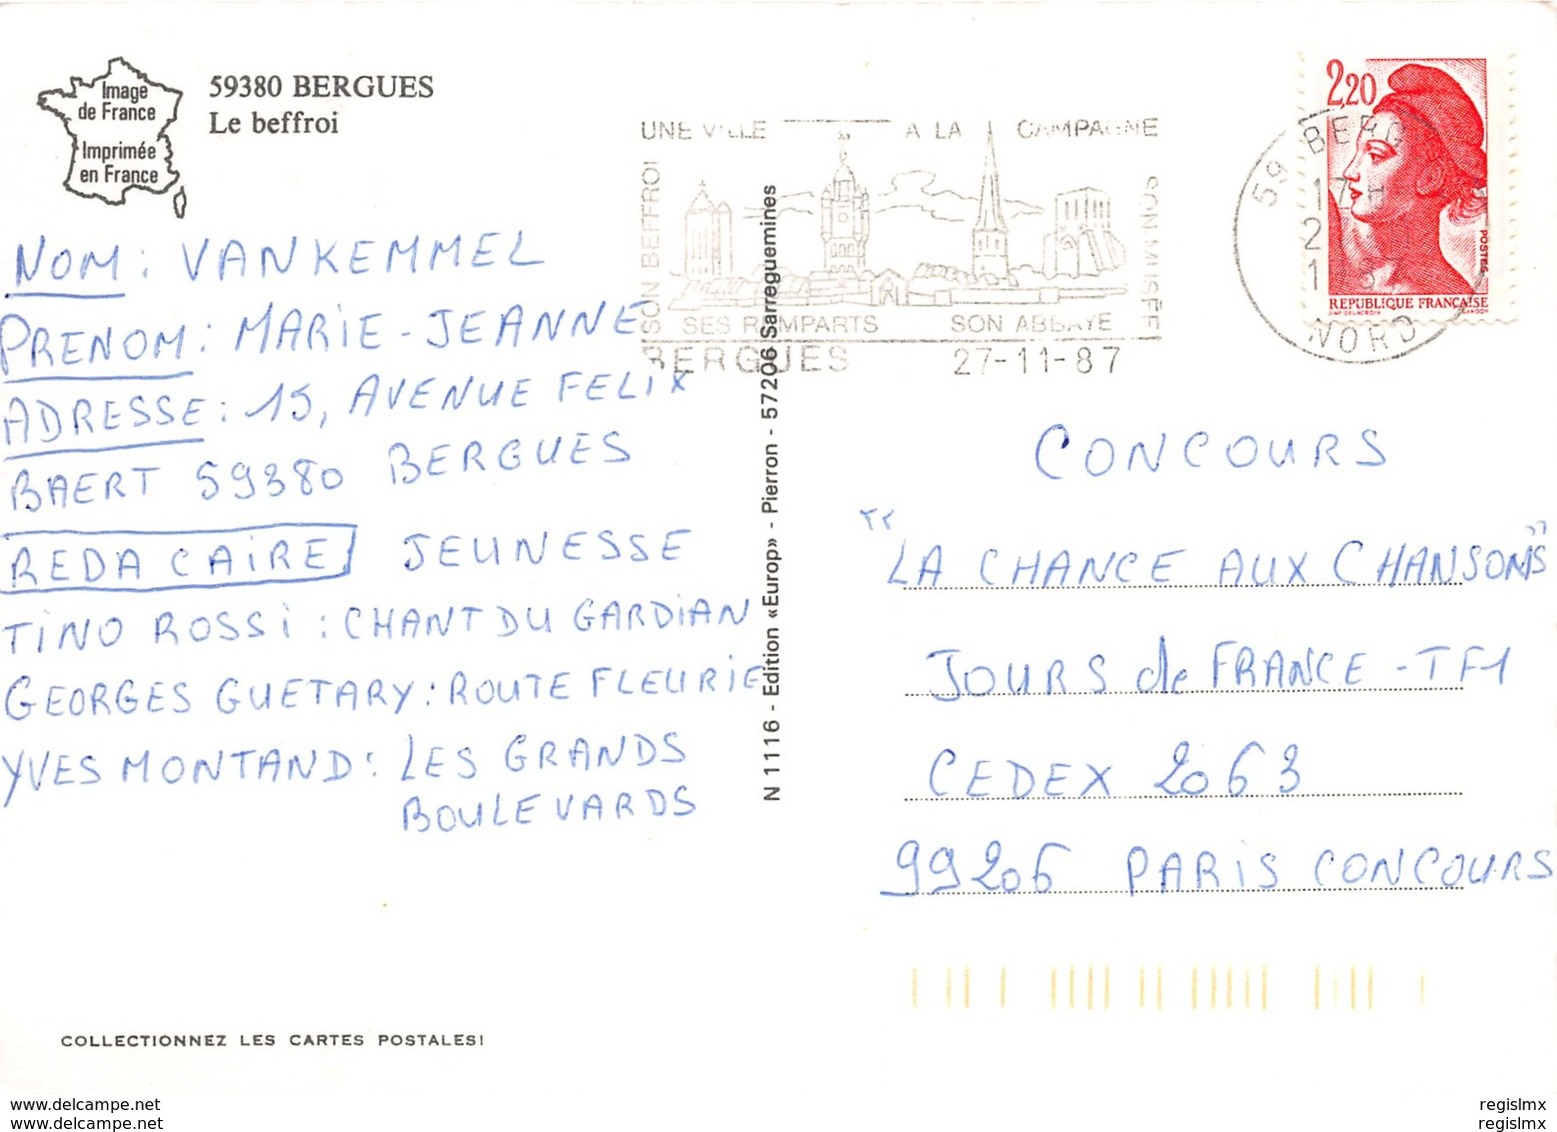 Image
de France
Imprimée
en France
59380 BERGUES
Le beffroi
NOM : VANKEMMEL
PRENOM : MARIE-JEANNE
ADRESSE : 15, AVENUE FELIX
BAERT 59380 BERGUES
REDA CAIRE JEUNESSE
TINO ROSSI : CHANT DU GARDIAN
GEORGES GUETARY : ROUTE FLEURIE
YVES MONTAND : LES GRANDS
BOULEVARDS
COLLECTIONNEZ LES CARTES POSTALES!
N 1116 - Edition «Europ» - Pierron - 57206 Sarreguemines
UNE VILLE A LA CAMPAGNE
SON BEFFROI
SON MUSÉE
SES REMPARTS SON ABBAYE
BERGUES 27-11-87
2,20
POSTES
REPUBLIQUE FRANÇAISE
D'AP. DELACROIX GANDON
59 BERG
17
2
NORD
CONCOURS
"LA CHANCE AUX CHANSONS"
JOURS de FRANCE - TF1
CEDEX 2063
99206 PARIS CONCOURS
www.delcampe.net
www.delcampe.net
regislmx
regislmx